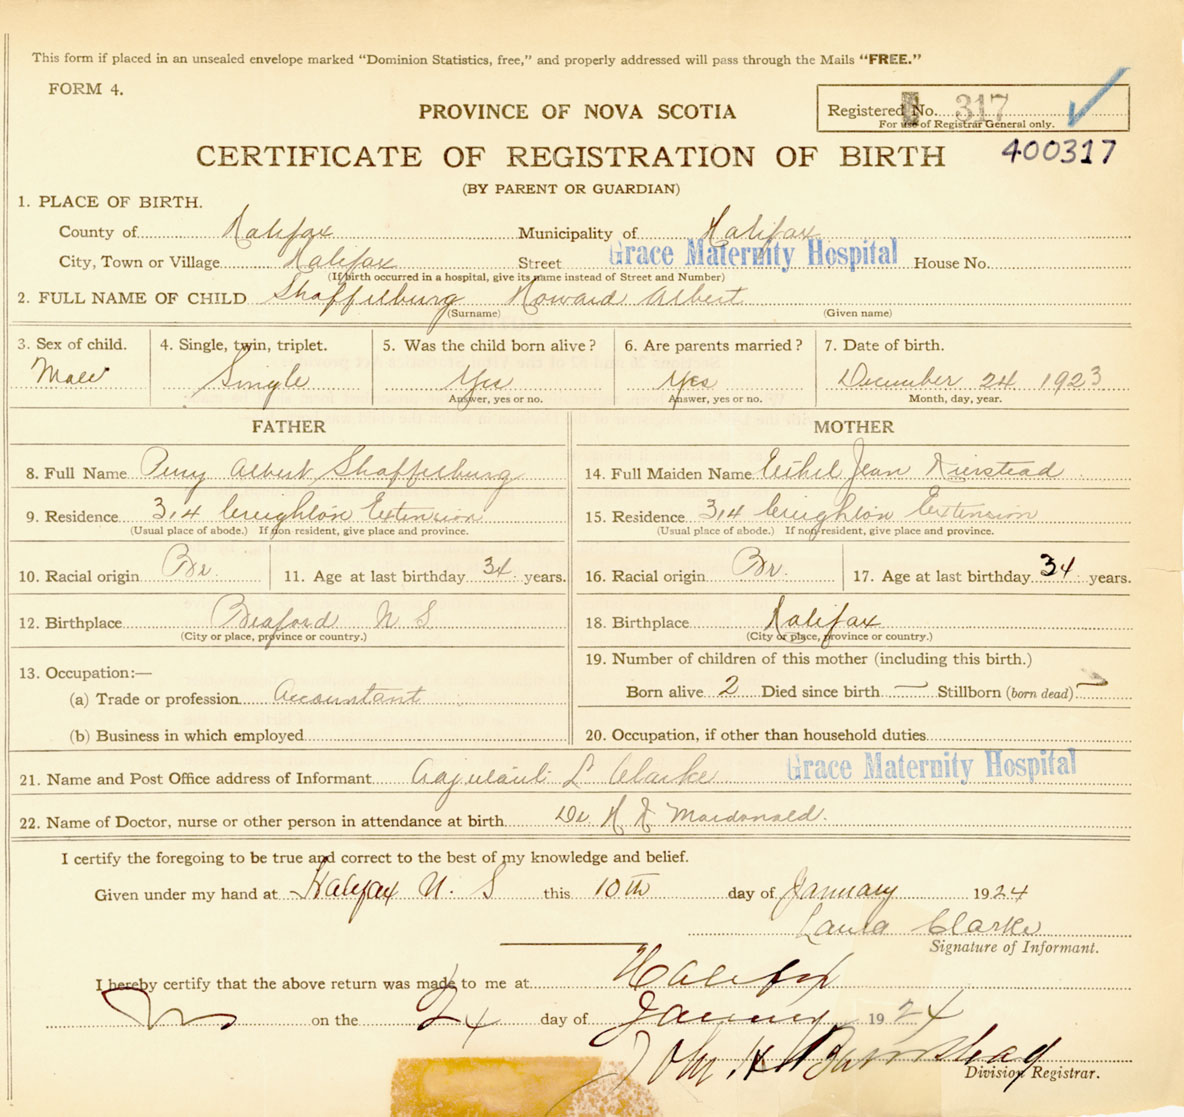 This form if placed in an unsealed envelope marked "Dominion Statistics, free," and properly addressed will pass through the Mails "FREE."
FORM 4.
PROVINCE OF NOVA SCOTIA
Registered No. 317
For use of Registrar General only.
CERTIFICATE OF REGISTRATION OF BIRTH 400317
(BY PARENT OR GUARDIAN)
1. PLACE OF BIRTH.
County of Halifax Municipality of Halifax
City, Town or Village Halifax Street Grace Maternity Hospital House No.
(If birth occurred in a hospital, give its name instead of Street and Number)
2. FULL NAME OF CHILD Shaffelburg Howard Albert
(Surname) (Given name)
3. Sex of child. 4. Single, twin, triplet. 5. Was the child born alive? 6. Are parents married? 7. Date of birth.
Male Single Yes Yes December 24 1923
Answer, yes or no. Answer, yes or no. Month, day, year.
FATHER MOTHER
8. Full Name Percy Albert Shaffelburg 14. Full Maiden Name Ethel Jean Kierstead
9. Residence 314 Creighton Extension 15. Residence 314 Creighton Extension
(Usual place of abode.) If non-resident, give place and province. (Usual place of abode.) If non-resident, give place and province.
10. Racial origin Br. 11. Age at last birthday 34 years. 16. Racial origin Br. 17. Age at last birthday 34 years.
12. Birthplace N S 18. Birthplace Halifax
(City or place, province or country.) (City or place, province or country.)
13. Occupation:— 19. Number of children of this mother (including this birth.)
(a) Trade or profession Accountant Born alive 2 Died since birth — Stillborn (born dead) —
(b) Business in which employed 20. Occupation, if other than household duties
21. Name and Post Office address of Informant L Clarke Grace Maternity Hospital
22. Name of Doctor, nurse or other person in attendance at birth Dr Macdonald.
I certify the foregoing to be true and correct to the best of my knowledge and belief.
Given under my hand at Halifax N. S this 10th day of January 1924
Laura Clarke
Signature of Informant.
I hereby certify that the above return was made to me at Halifax
on the 24 day of January 1924
John
Division Registrar.